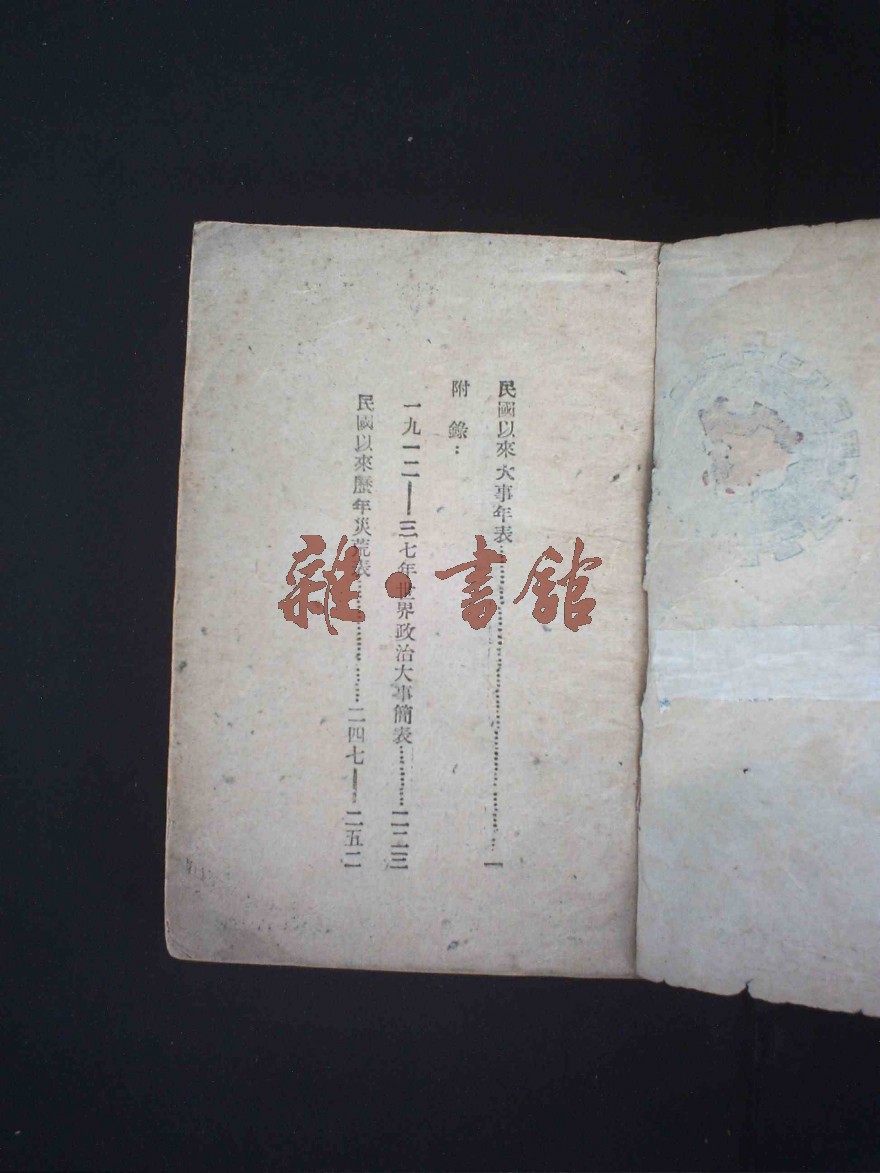 民國以來大事年表……一
附錄：
一九一二——三七年世界政治大事簡表……二二三
民國以來歷年災荒表……二四七——二五二
雜·書館